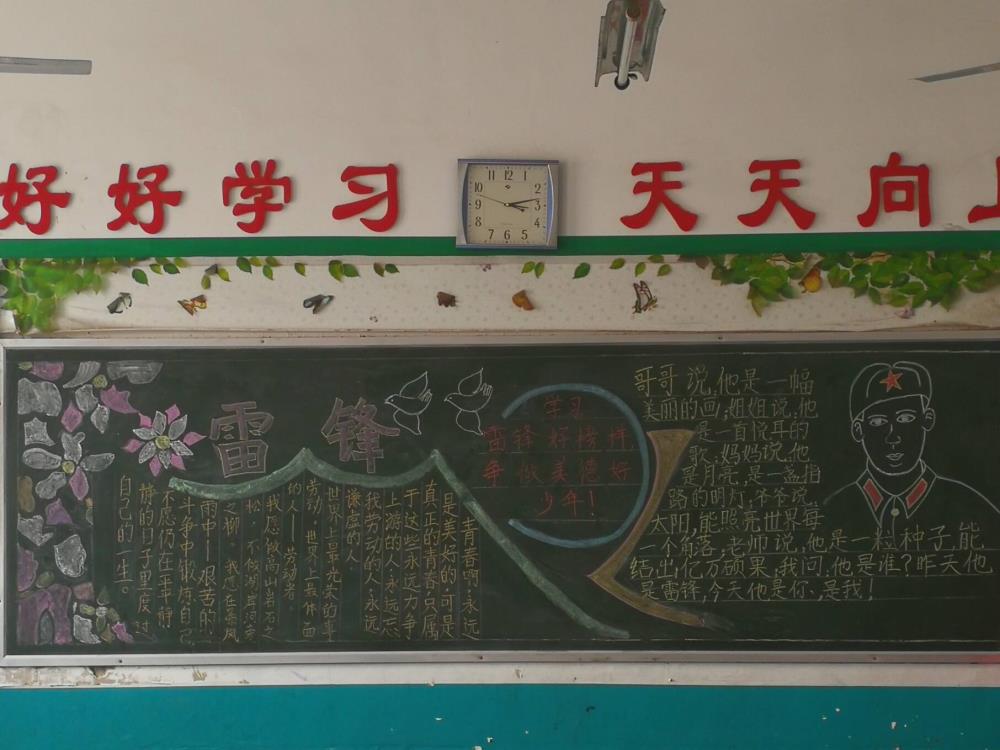 好好学习 天天向上
11 12 1
10 2
9 3
8 4
7 6 5
雷锋
学习
雷锋好榜样
争做美德好
少年!
哥哥说,他是一幅
美丽的画,姐姐说,他
是一首悦耳的
歌,妈妈说,他
是月亮,是一盏指
路的明灯,爷爷说,
太阳,能照亮世界每
一个角落,老师说,他是一粒种子,能
结出亿万硕果,我问,他是谁?昨天他,
是雷锋,今天他是你、是我!
青春啊,永远
是美好的,可是
真正的青春,只属
于这些永远力争
上游的人,永远忘
我劳动的人,永远
谦虚的人
世界上最光荣的事
劳动,世界上最体面
的人——劳动者。
我愿做高山岩石之
松,不做湖岸河旁
之柳。我愿在暴风
雨中——艰苦的
斗争中锻炼自己,
不愿仍在平平静
静的日子里度过
自己的一生。